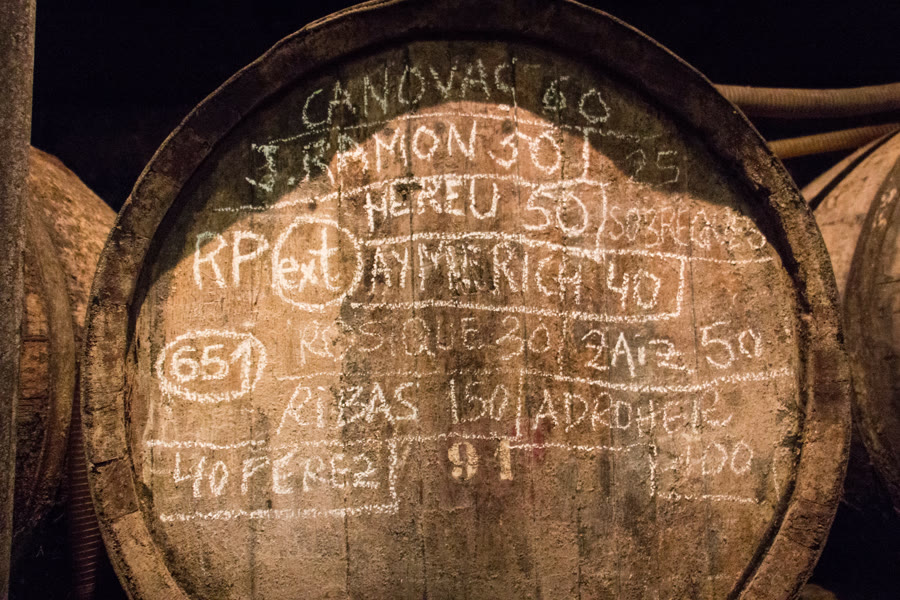 CANOVAS 60
J. RAMON 30 25
HEREU 50
RP ext AYMERICH 40
651 ROSIQUE 30 2Aiz 50
RIBAS 150 ADROHER
40 PEREZ 91 400